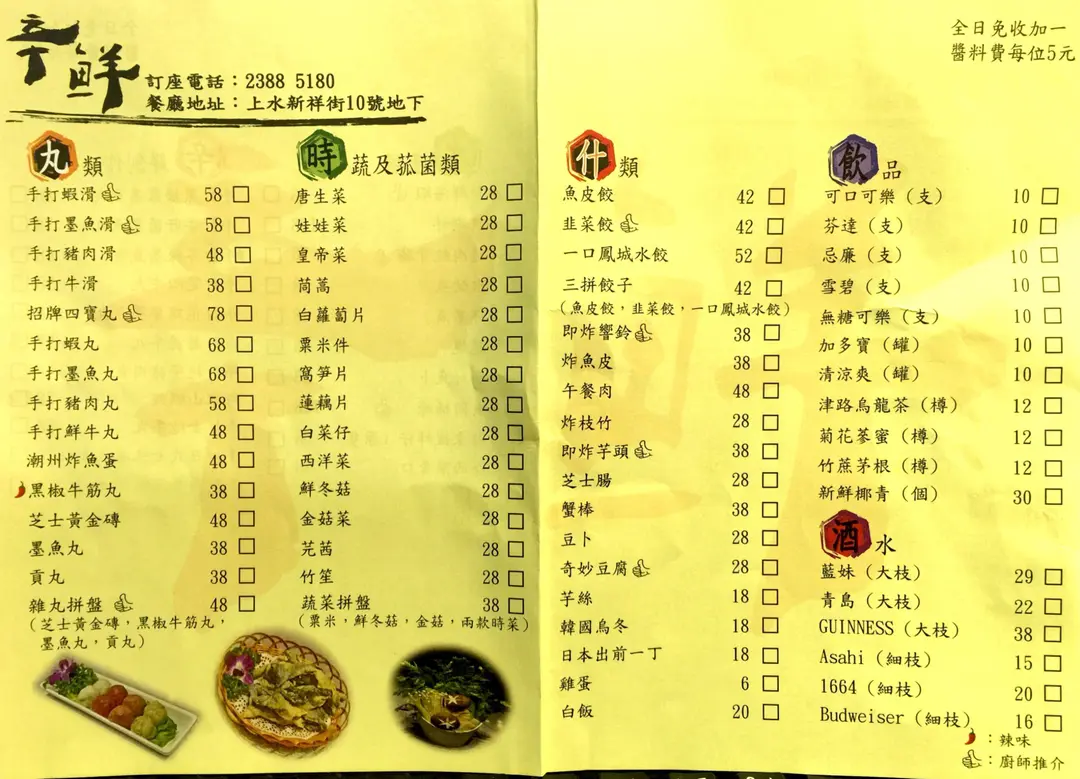 辛鮮
訂座電話：2388 5180
餐廳地址：上水新祥街10號地下
全日免收加一
醬料費每位5元
丸類
手打蝦滑 58
手打墨魚滑 58
手打豬肉滑 48
手打牛滑 38
招牌四寶丸 78
手打蝦丸 68
手打墨魚丸 68
手打豬肉丸 58
手打鮮牛丸 48
潮州炸魚蛋 48
黑椒牛筋丸 38
芝士黃金磚 48
墨魚丸 38
貢丸 38
雜丸拼盤 48
（芝士黃金磚，黑椒牛筋丸，
墨魚丸，貢丸）
時蔬及菰菌類
唐生菜 28
娃娃菜 28
皇帝菜 28
茼蒿 28
白蘿蔔片 28
粟米件 28
窩笋片 28
蓮藕片 28
白菜仔 28
西洋菜 28
鮮冬菇 28
金菇菜 28
芫茜 28
竹笙 28
蔬菜拼盤 38
（粟米，鮮冬菇，金菇，兩款時菜）
什類
魚皮餃 42
韭菜餃 42
一口鳳城水餃 52
三拼餃子 42
（魚皮餃，韭菜餃，一口鳳城水餃）
即炸響鈴 38
炸魚皮 38
午餐肉 48
炸枝竹 28
即炸芋頭 38
芝士腸 28
蟹棒 38
豆卜 28
奇妙豆腐 28
芋絲 18
韓國烏冬 18
日本出前一丁 18
雞蛋 6
白飯 20
飲品
可口可樂（支） 10
芬達（支） 10
忌廉（支） 10
雪碧（支） 10
無糖可樂（支） 10
加多寶（罐） 10
清涼爽（罐） 10
津路烏龍茶（樽） 12
菊花蔘蜜（樽） 12
竹蔗茅根（樽） 12
新鮮椰青（個） 30
酒水
藍妹（大枝） 29
青島（大枝） 22
GUINNESS（大枝） 38
Asahi（細枝） 15
1664（細枝） 20
Budweiser（細枝） 16
：辣味
：廚師推介